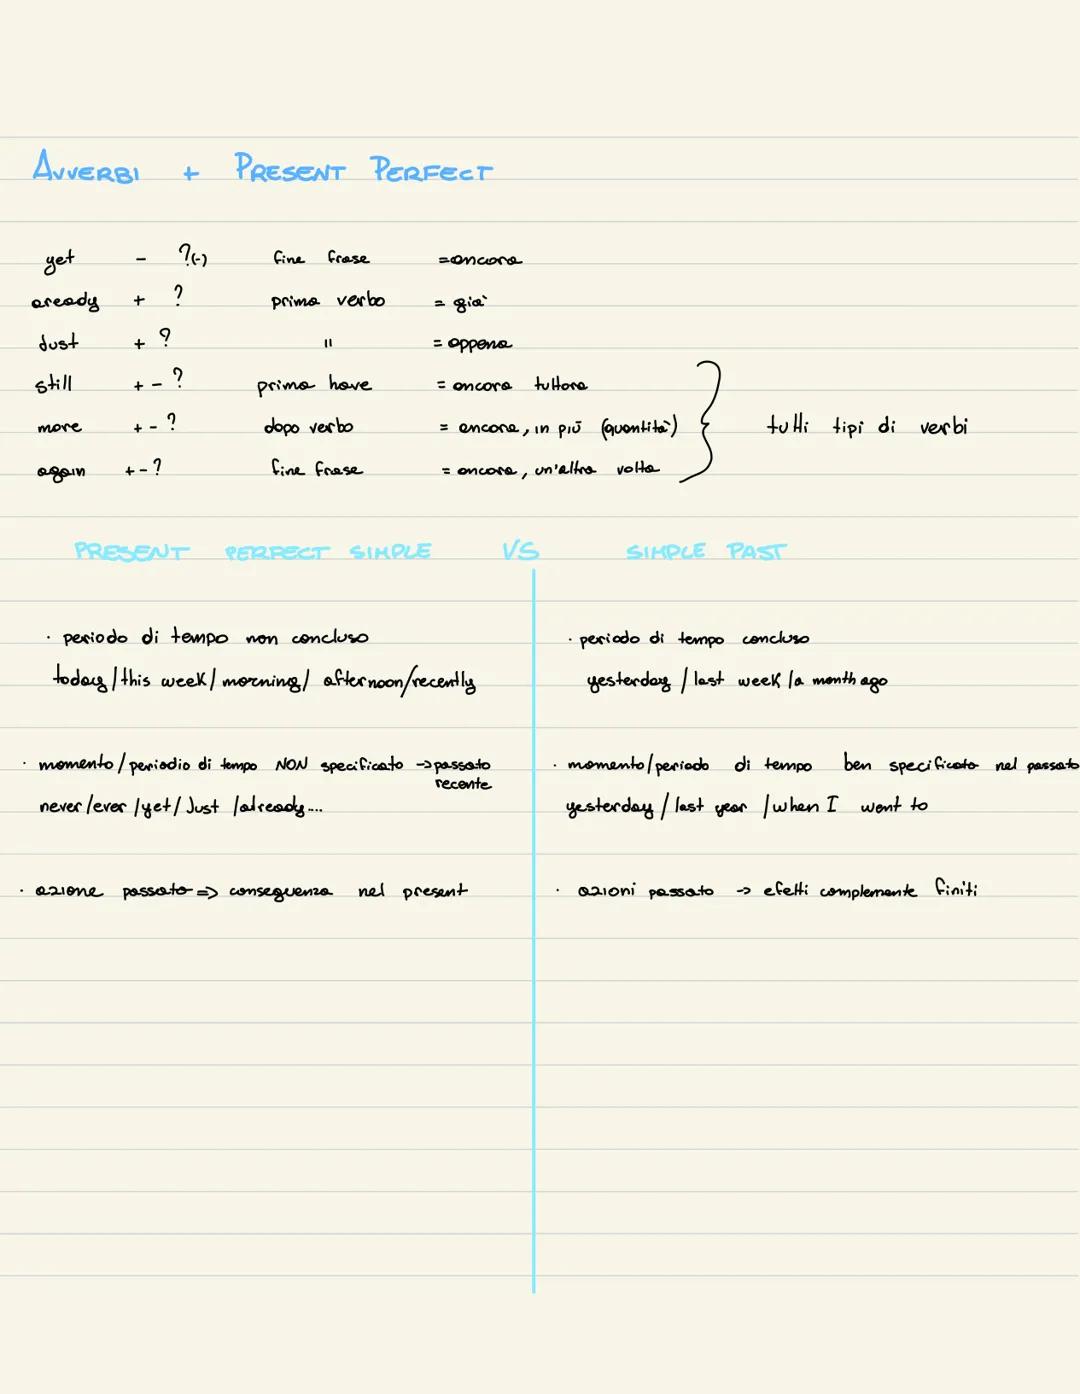 AVVERBI + PRESENT PERFECT
yet - ?(-) fine frase =ancora
aready + ? prima verbo = già
Just + ? " = appena
still + - ? prima have = ancora tuttora
more + - ? dopo verbo = ancora, in più (quantità)
again + - ? fine frase = ancora, un'altra volta
tutti tipi di verbi
PRESENT PERFECT SIMPLE VS SIMPLE PAST
· periodo di tempo non concluso
today / this week / morning / afternoon/recently
· momento / periodio di tempo NON specificato → passato
recente
never /ever /yet / Just /already....
· azione passato ⇒ conseguenza nel present
· periodo di tempo concluso
yesterday / last week /a month ago
· momento/periodo di tempo ben specificato nel passato
yesterday / last year / when I went to
· azioni passato → efetti complemente finiti